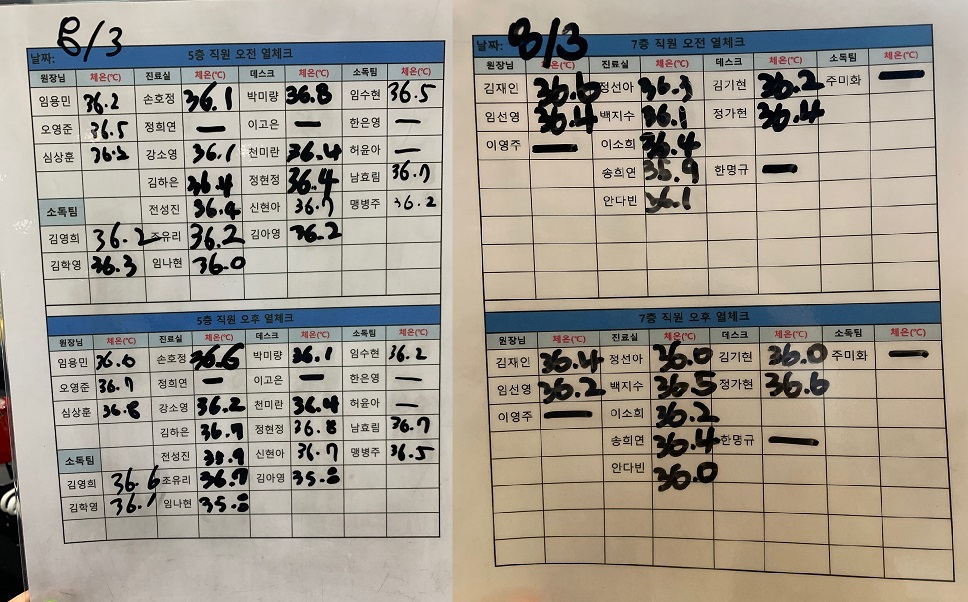 날짜: 8/3 5층 직원 오전 열체크
원장님 체온(℃) 진료실 체온(℃) 데스크 체온(℃) 소독팀 체온(℃)
임용민 36.2 손호정 36.1 박미량 36.8 임수현 36.5
오영준 36.5 정희연 — 이고은 — 한은영 —
심상훈 강소영 36.1 천미란 36.4 허윤아 —
김하은 36.4 정현정 36.4 남효림 36.7
소독팀 전성진 36.4 신현아 36.7 맹병주 36.2
김영희 36.2 조유리 36.2 김아영 36.2
김학영 36.3 임나현 36.0
5층 직원 오후 열체크
원장님 체온(℃) 진료실 체온(℃) 데스크 체온(℃) 소독팀 체온(℃)
임용민 36.0 손호정 36.6 박미량 36.1 임수현 36.2
오영준 36.7 정희연 — 이고은 — 한은영 —
심상훈 36.8 강소영 36.2 천미란 36.4 허윤아 —
김하은 36.7 정현정 36.8 남효림 36.7
소독팀 전성진 신현아 36.7 맹병주 36.5
김영희 36.6 조유리 36.7 김아영 35.8
김학영 36.1 임나현 35.8
날짜: 8/3 7층 직원 오전 열체크
원장님 체온(℃) 진료실 체온(℃) 데스크 체온(℃) 소독팀 체온(℃)
김재인 36.6 정선아 36.3 김기현 36.2 주미화 —
임선영 36.4 백지수 36.1 정가현 36.4
이영주 — 이소희 36.4
송희연 35.9 한명규 —
안다빈 36.1
7층 직원 오후 열체크
원장님 체온(℃) 진료실 체온(℃) 데스크 체온(℃) 소독팀 체온(℃)
김재인 36.4 정선아 36.0 김기현 36.0 주미화 —
임선영 36.2 백지수 36.5 정가현 36.6
이영주 — 이소희 36.2
송희연 36.4 한명규 —
안다빈 36.0